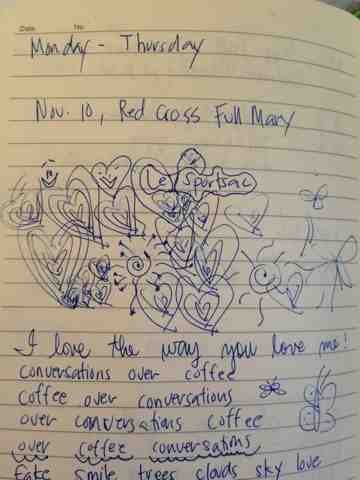 Date No
Monday - Thursday
Nov. 10, Red Cross Full Mary
Le Sportsac
I love the way you love me!
conversations over coffee
coffee over conversations
over conversations coffee
over coffee conversations
fake smile trees clouds sky love